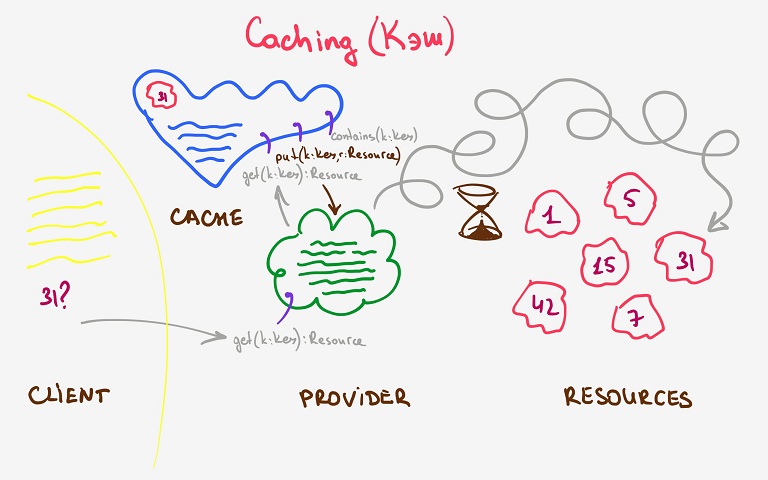 Caching (Кэш)
31
contains(k:Key)
put(k:Key,r:Resource)
get(k:Key):Resource
CACHE
1
5
15
31
42
7
31?
get(k:Key):Resource
CLIENT
PROVIDER
RESOURCES